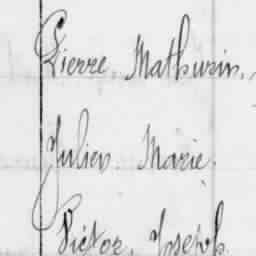 Pierre, Mathurin,
Julien. Marie.
Victor, Joseph.